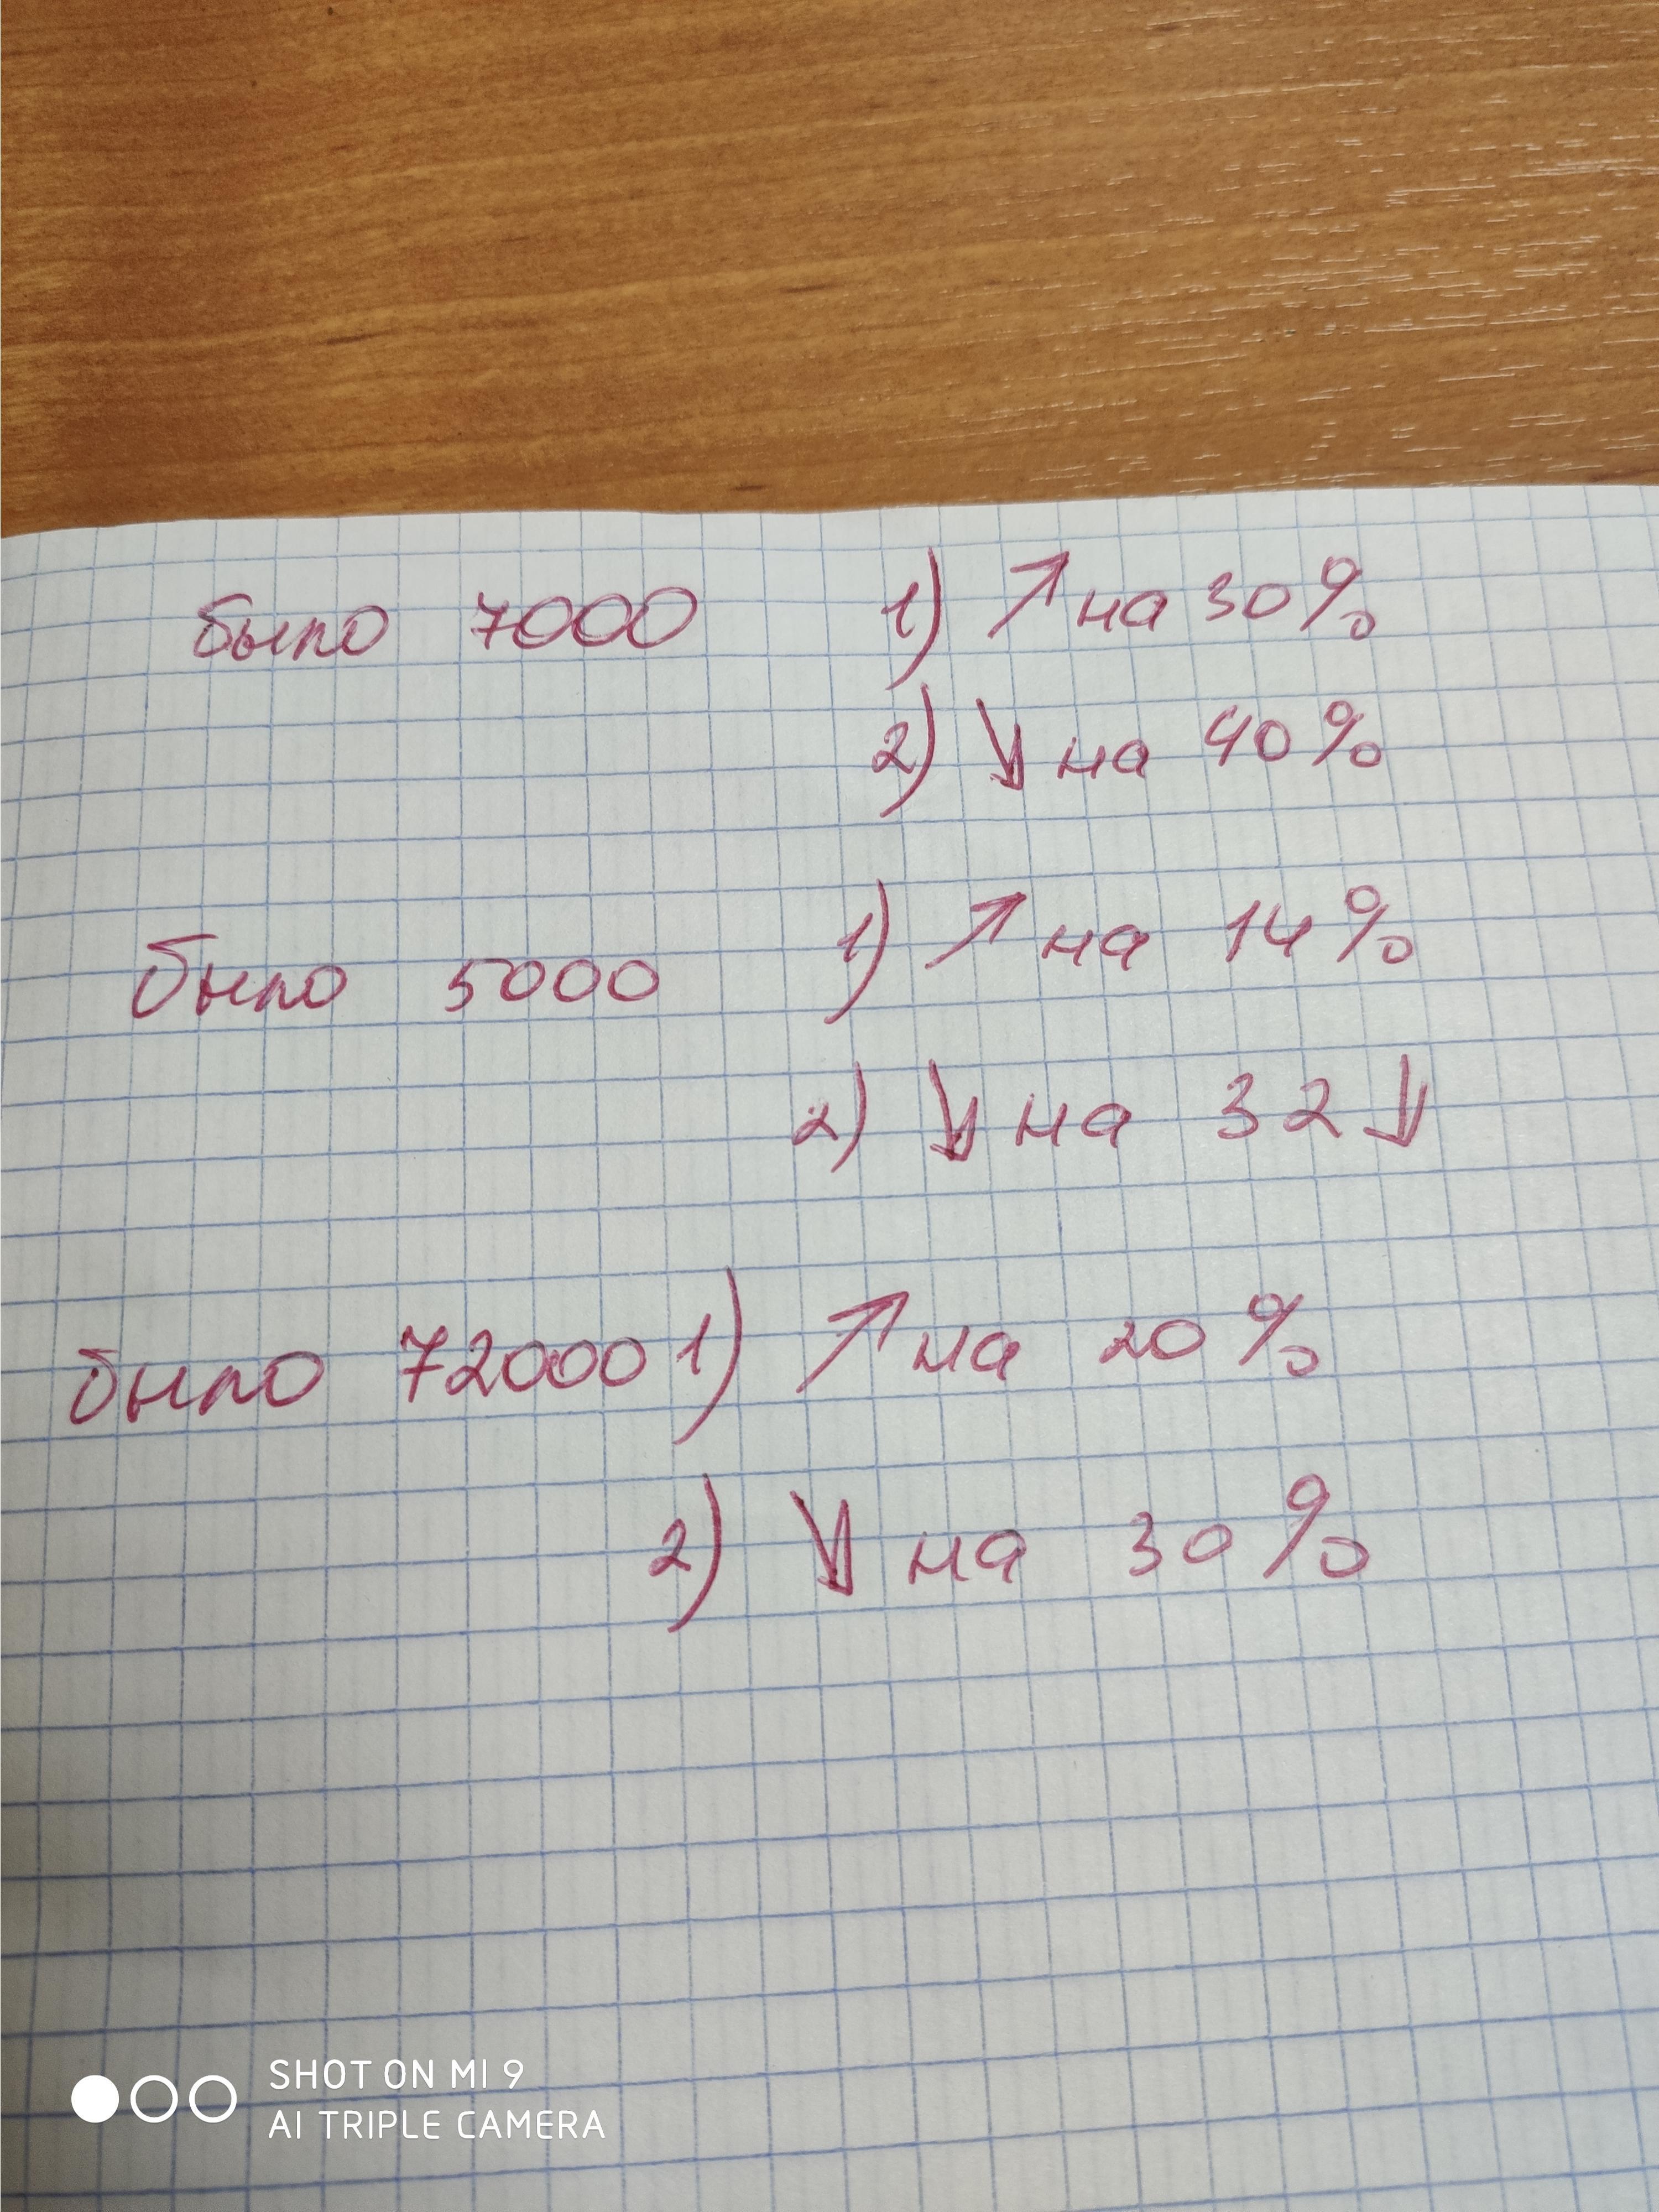 было 7000 1) ↗ на 30%
2) ↘ на 40%
было 5000 1) ↗ на 14%
2) ↘ на 32 ↓
было 72000 1) ↗ на 20%
2) ↘ на 30%
SHOT ON MI 9
AI TRIPLE CAMERA